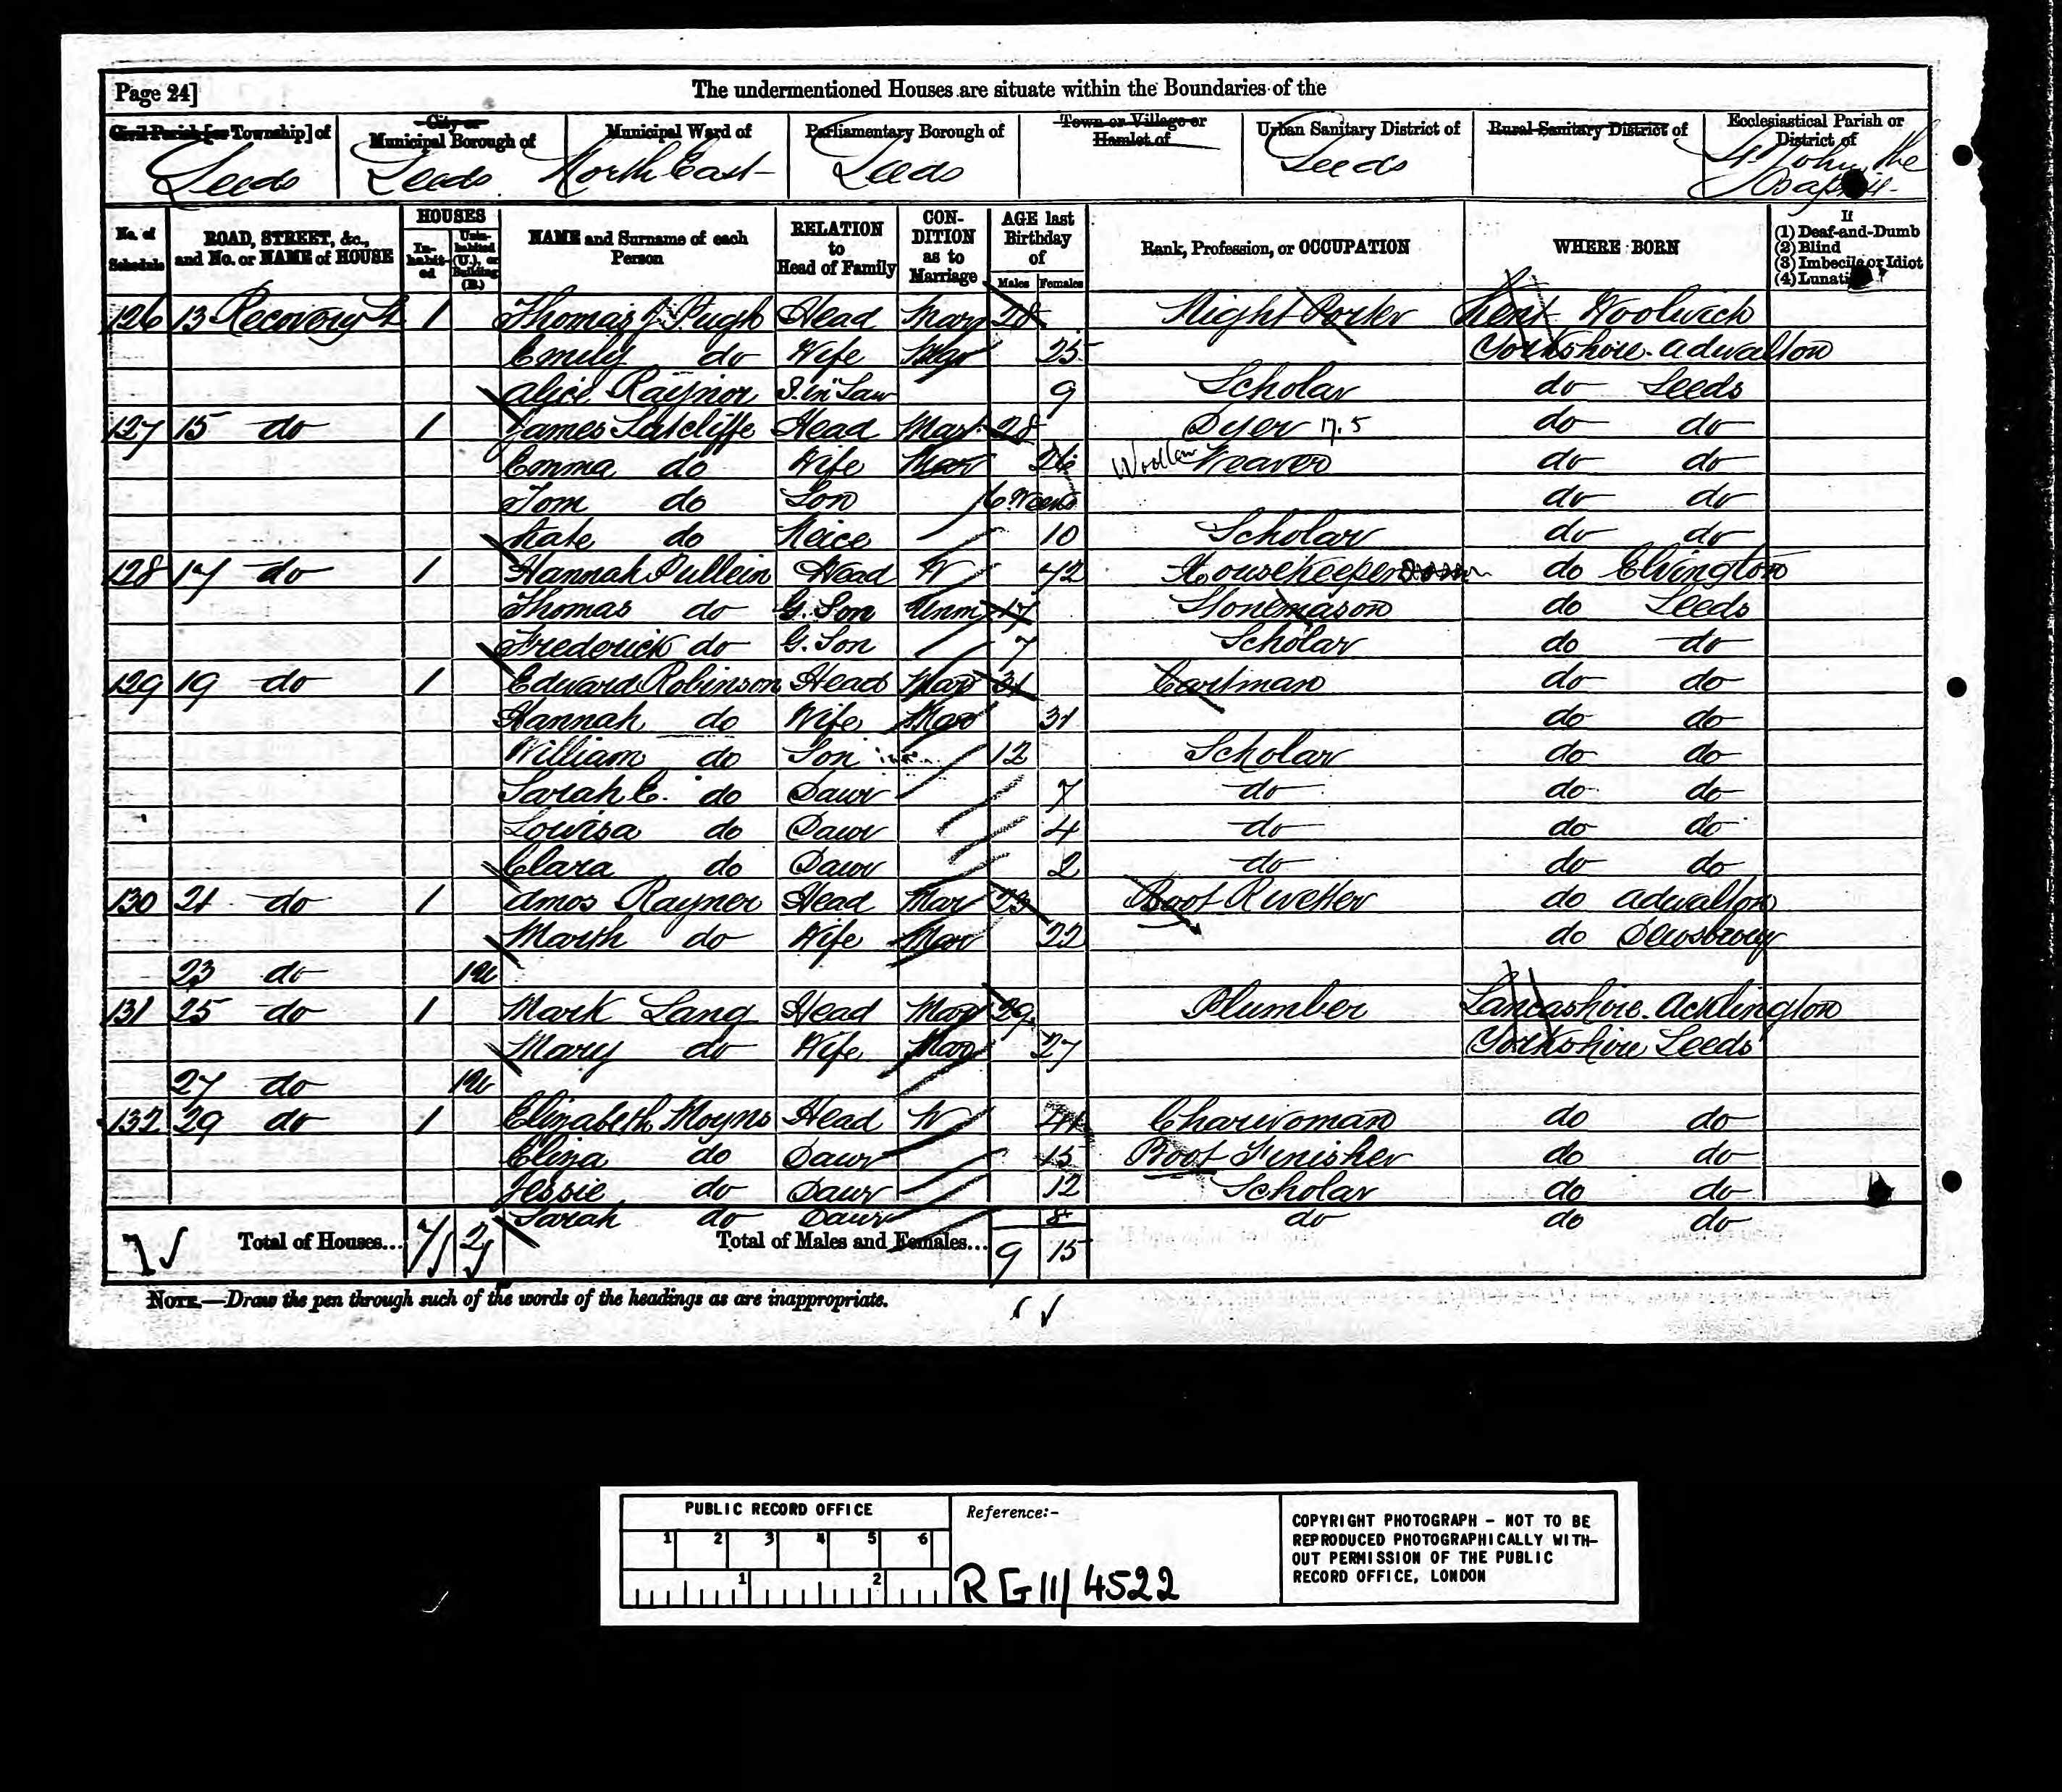 Page 24]
The undermentioned Houses are situate within the Boundaries of the
Civil Parish [or Township] of
City or Municipal Borough of
Municipal Ward of
Parliamentary Borough of
Town or Village or Hamlet of
Urban Sanitary District of
Rural Sanitary District of
Ecclesiastical Parish or District of
Leeds Leeds North East Leeds Leeds St John the Baptist
No. of Schedule
ROAD, STREET, &c., and No. or NAME of HOUSE
HOUSES
Inhabited
Uninhabited (U.), or Building (B.)
NAME and Surname of each Person
RELATION to Head of Family
CONDITION as to Marriage
AGE last Birthday of
Males Females
Rank, Profession, or OCCUPATION
WHERE BORN
If
(1) Deaf-and-Dumb
(2) Blind
(3) Imbecile or Idiot
(4) Lunatic
126 13 Recovery St 1 Thomas J Pugh Head Mar 28 Night Porter Kent Woolwich
Emily do Wife Mar 25 Yorkshire. Adwalton
Alice Raynor S. in Law 9 Scholar do Leeds
127 15 do 1 James Sutcliffe Head Mar 28 Dyer 17.5 do do
Emma do Wife Mar 26 Woollen Weaver do do
Tom do Son 6 Weeks do do
Kate do Neice 10 Scholar do do
128 17 do 1 Hannah Pullein Head W 72 Housekeeper do Elvington
Thomas do G. Son Unm 17 Stonemason do Leeds
Frederick do G. Son 7 Scholar do do
129 19 do 1 Edward Robinson Head Mar 31 Cartman do do
Hannah do Wife Mar 31 do do
William do Son 12 Scholar do do
Sarah E. do Daur 7 do do do
Louisa do Daur 4 do do do
Clara do Daur 2 do do do
130 21 do 1 Amos Rayner Head Mar 23 Boot Rivetter do Adwalton
Marth do Wife Mar 22 do Dewsbury
23 do 1U
131 25 do 1 Mark Lang Head Mar 29 Plumber Lancashire. Acklington
Mary do Wife Mar 27 Yorkshire Leeds
27 do 1U
132 29 do 1 Elizabeth Moyns Head W 44 Charwoman do do
Eliza do Daur 15 Boot Finisher do do
Jessie do Daur 12 Scholar do do
Sarah do Daur 8 do do do
Total of Houses... 7 2 Total of Males and Females... 9 15
NOTE.—Draw the pen through such of the words of the headings as are inappropriate.
PUBLIC RECORD OFFICE
1 2 3 4 5 6
1 2
Reference:-
RG 11/4522
COPYRIGHT PHOTOGRAPH - NOT TO BE
REPRODUCED PHOTOGRAPHICALLY WITH-
OUT PERMISSION OF THE PUBLIC
RECORD OFFICE, LONDON